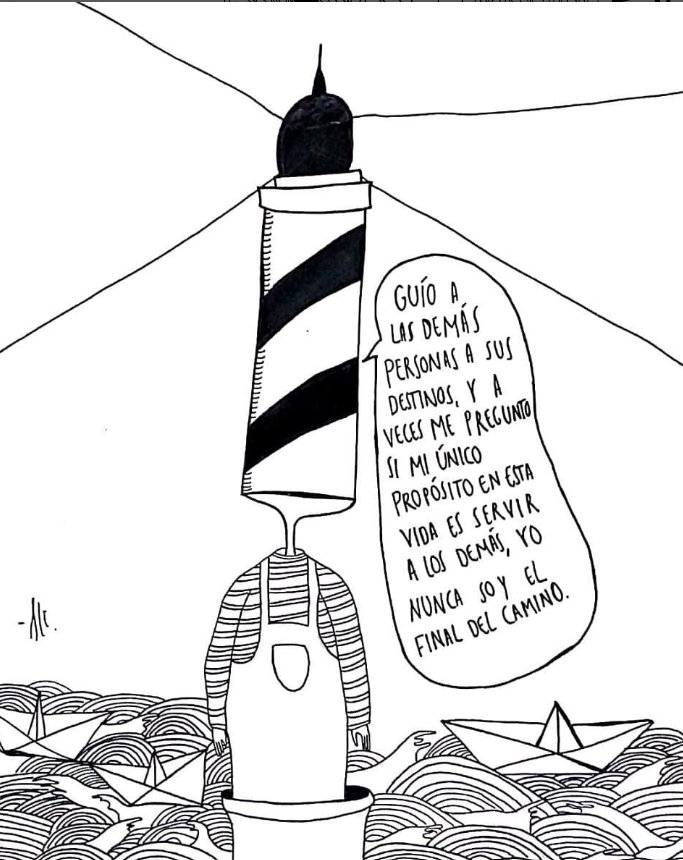 GUÍO A
LAS DEMÁS
PERSONAS A SUS
DESTINOS, Y A
VECES ME PREGUNTO
SI MI ÚNICO
PROPÓSITO EN ESTA
VIDA ES SERVIR
A LOS DEMÁS, YO
NUNCA SOY EL
FINAL DEL CAMINO.